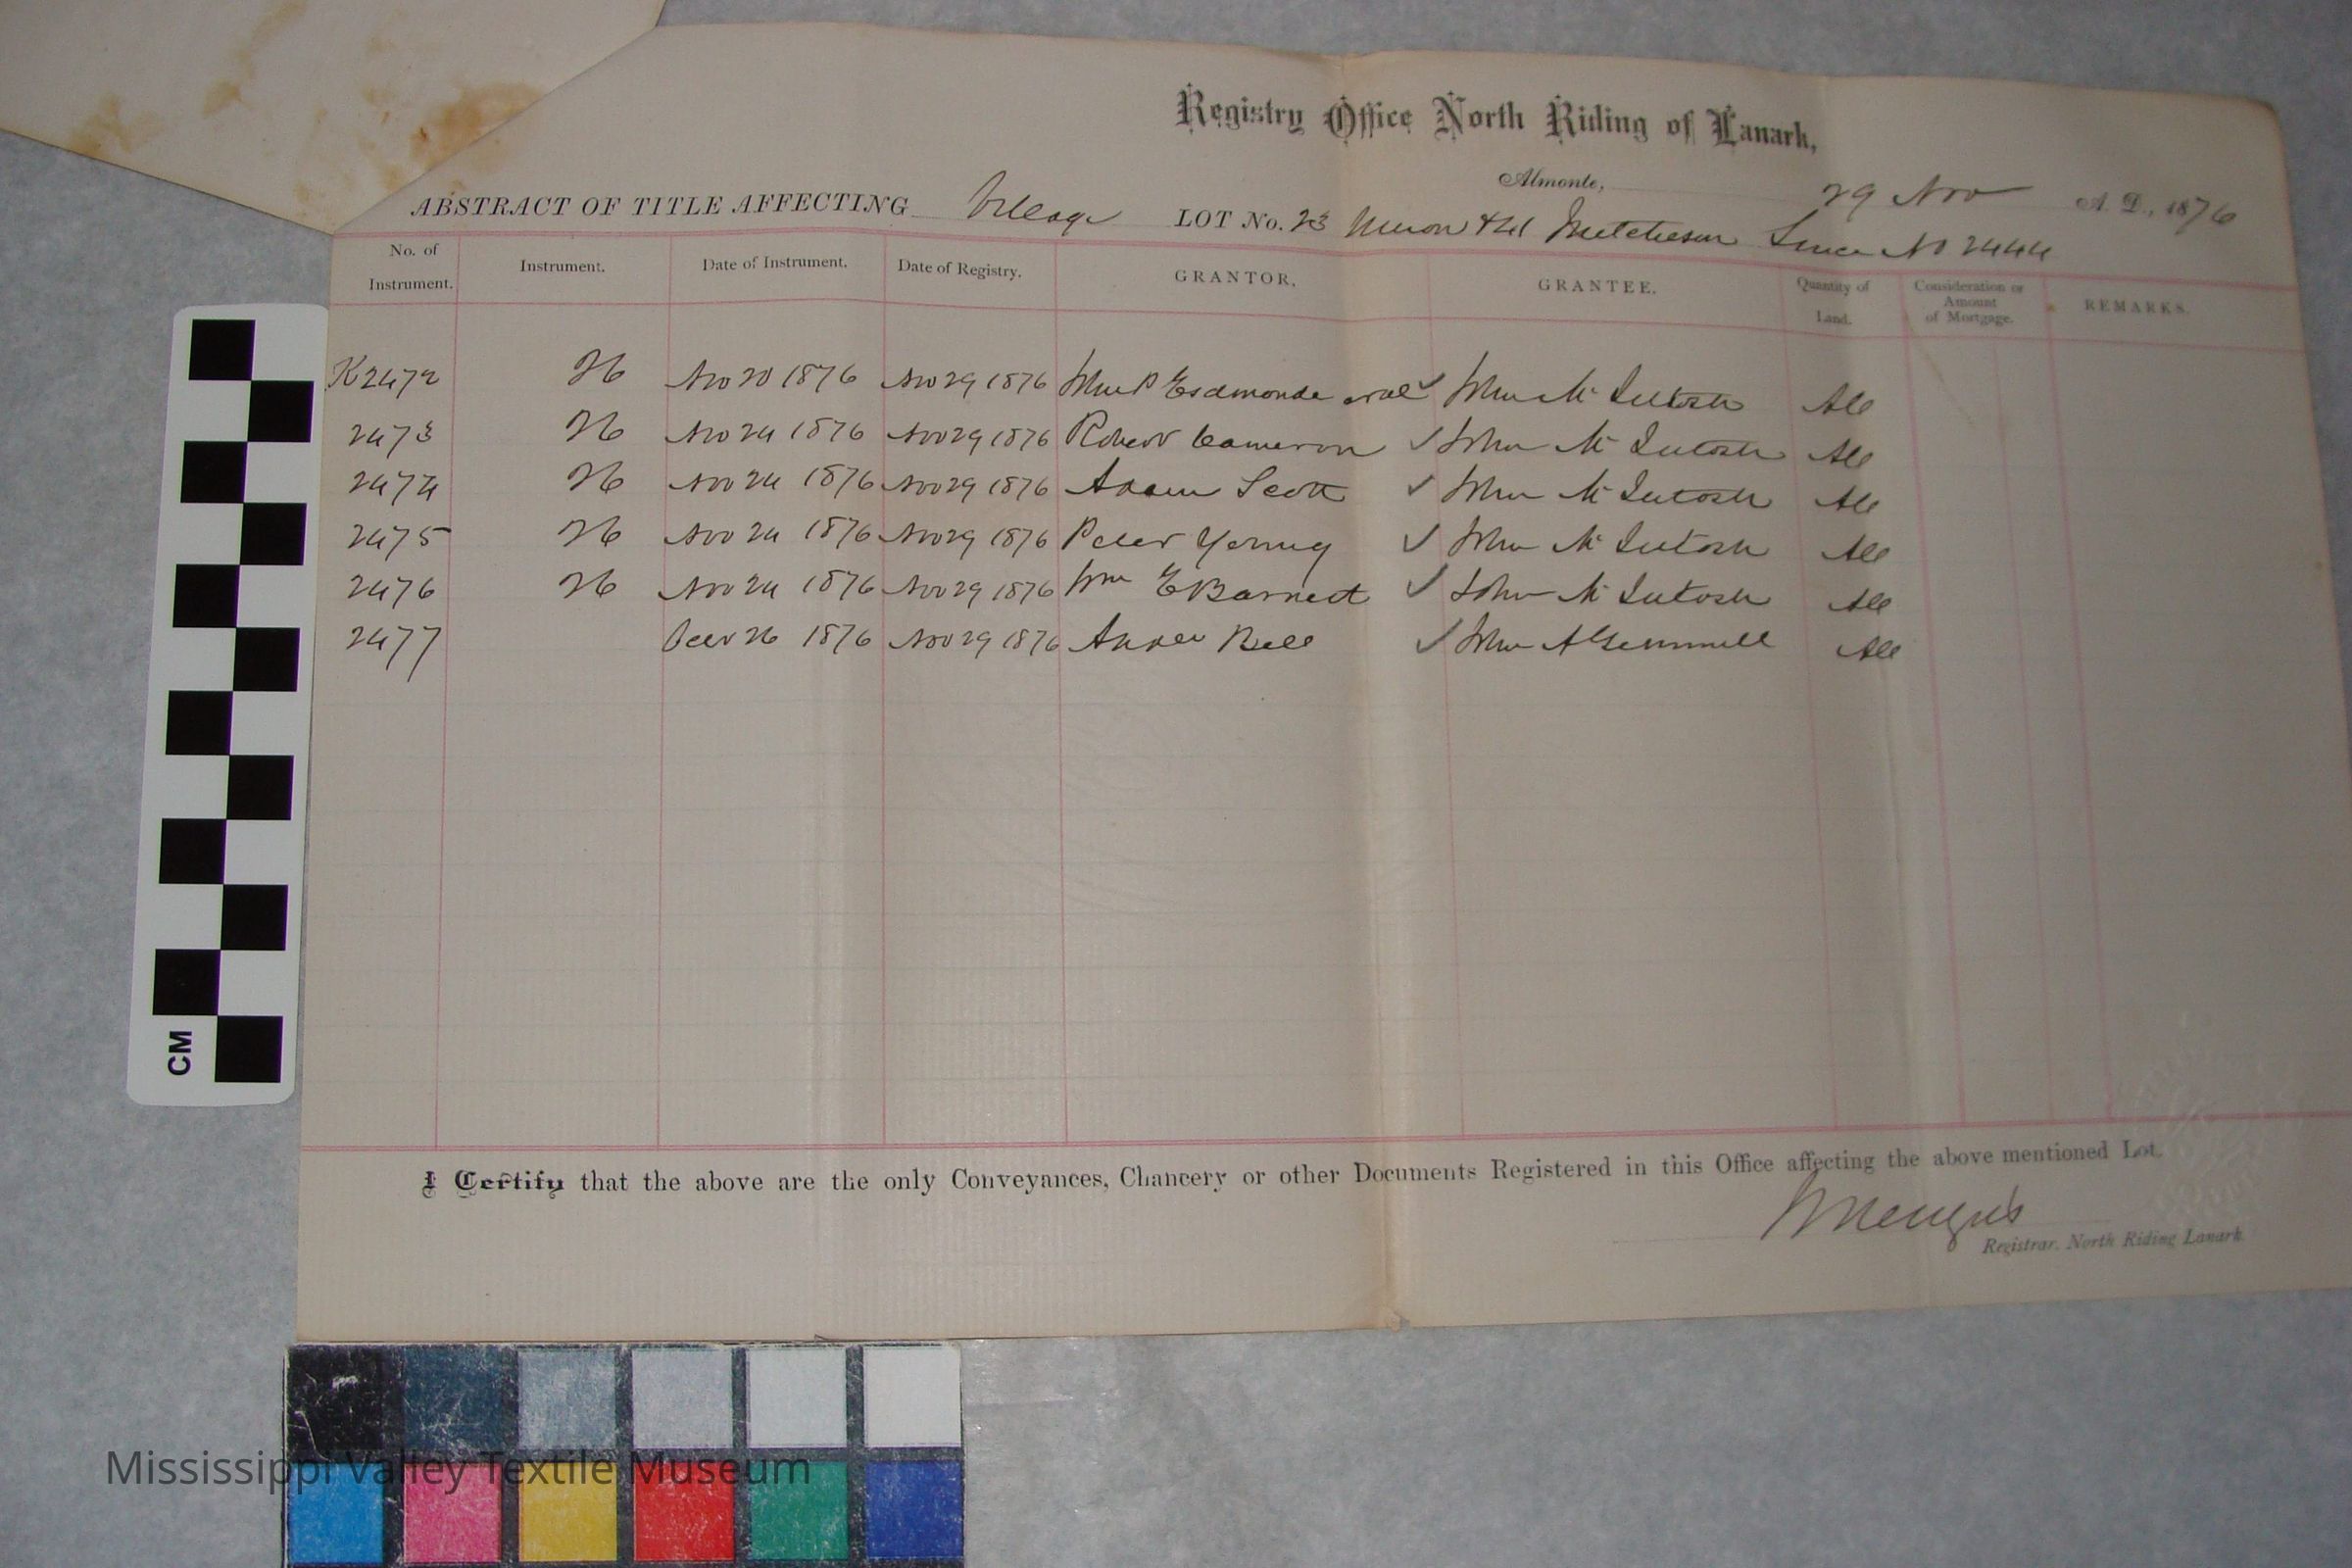 Registry Office North Riding of Lanark,
Almonte, 29 Nov A. D., 1876
ABSTRACT OF TITLE AFFECTING Village LOT No. 23 Since No 2444
No. of Instrument. Instrument. Date of Instrument. Date of Registry. GRANTOR, GRANTEE. Quantity of Land. Consideration or Amount of Mortgage. REMARKS.
K2472 Nov 20 1876 Nov 29 1876 Esdmonde John McIntosh All
2473 Nov 24 1876 Nov 29 1876 Robert Cameron ✓ John McIntosh All
2474 Nov 24 1876 Nov 29 1876 Adam Scott ✓ John McIntosh All
2475 Nov 24 1876 Nov 29 1876 Peter Young ✓ John McIntosh All
2476 Nov 24 1876 Nov 29 1876 Wm E Barnett ✓ John McIntosh All
2477 26 1876 Nov 29 1876 Andw Bell ✓ John A Gemmill All
I Certify that the above are the only Conveyances, Chancery or other Documents Registered in this Office affecting the above mentioned Lot.
Registrar. North Riding Lanark
CM
Mississippi Valley Textile Museum